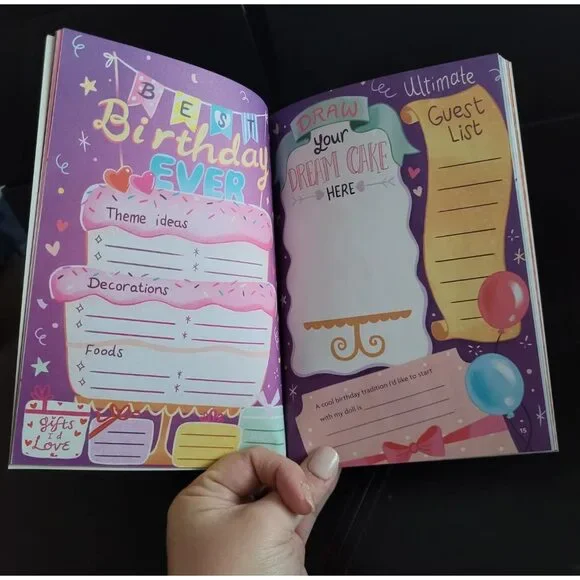 BEST
Birthday
EVER
Theme ideas
Decorations
Foods
gifts
I'd
LOVE
DRAW
your
DREAM CAKE
HERE
Ultimate
Guest
List
A cool birthday tradition I'd like to start
with my doll is
15